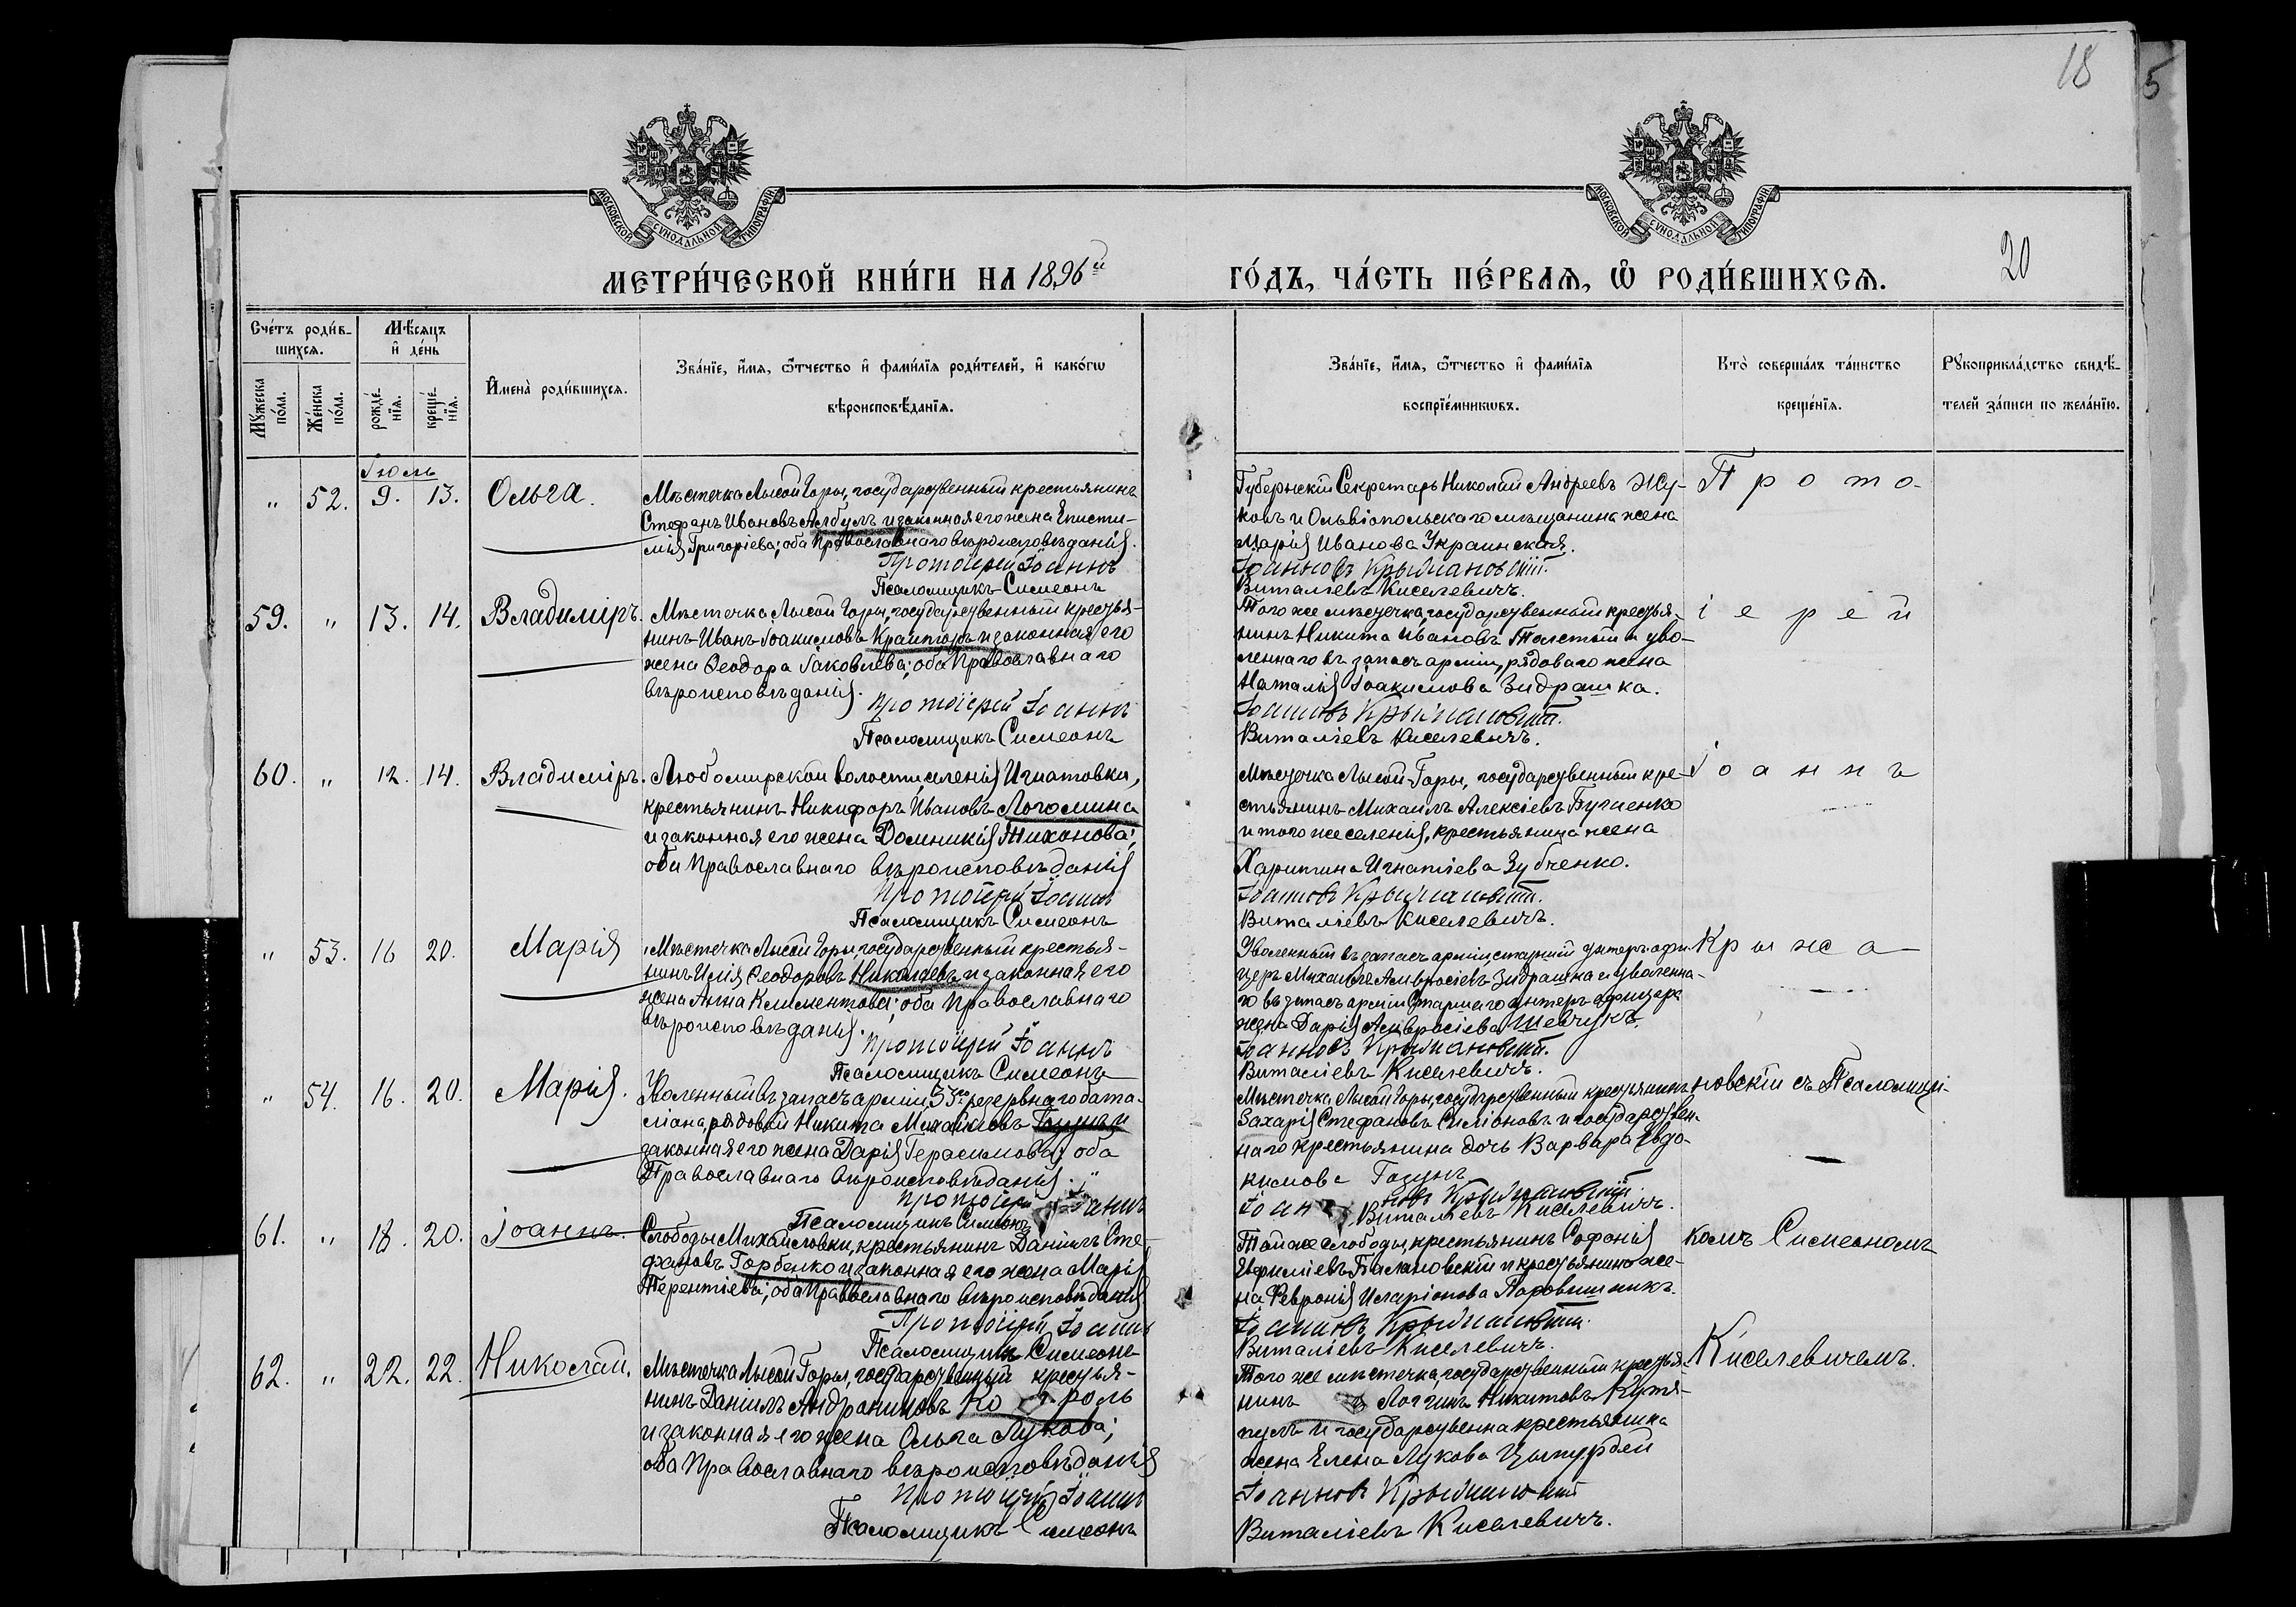 18
5
МОСКОВСКОЙ СѴНОДАЛЬНОЙ ТИПОГРАФІИ
МОСКОВСКОЙ СѴНОДАЛЬНОЙ ТИПОГРАФІИ
МЕТРИ́ЧЕСКОЙ КНИ́ГИ НА 1896й
ГО́ДЪ, ЧА́СТЬ ПЕ́РВАѦ, Ѡ҆ РОДИ́ВШИХСѦ.
20
Сче́тъ роди́в-
шихсѧ.
Мꙋ́жеска по́ла.
Же́нска по́ла.
Мѣ́сѧцъ
и҆ де́нь
рожде́-
нїѧ.
креще́-
нїѧ.
И҆мена̀ роди́вшихсѧ.
Зва́нїе, и҆́мѧ, ѻ҆́тчество и҆ фами́лїѧ роди́телей, и҆ како́гѡ
вѣроисповѣ́данїѧ.
Зва́нїе, и҆́мѧ, ѻ҆́тчество и҆ фами́лїѧ
воспрїе́мникѡвъ.
Кто̀ соверша́лъ та́инство
креще́нїѧ.
Рꙋкоприкла́дство свидѣ́-
телей за́писи по жела́нїю.
Іюль
" 52. 9. 13. Ольга.
Мѣстечка Лысой Горы, государственный крестьянинъ
Стефанъ Ивановъ Албулъ и законная его жена Еписти-
мія Григоріева; оба Православнаго вѣроисповѣданія.
Протоіерей Іоаннъ
Псаломщикъ Симеонъ
Губернскій Секретарь Николай Андреевъ Жу-
ковъ и Ольвіопольскаго мѣщанина жена
Марія Иванова Украинская.
Іоанновъ Крыжановскій.
Виталіевъ Киселевичъ.
Прото-
59. " 13. 14. Владиміръ.
Мѣстечка Лысой Горы, государственный кресть-
нинъ Иванъ Іоакимовъ и законная его
жена Ѳеодора Іаковлева; оба Православнаго
вѣроисповѣданія.
Протоіерей Іоаннъ
Псаломщикъ Симеонъ
Того же мѣстечка, государственный крестья-
нинъ Никита Ивановъ Толстый и уво-
леннаго въ запасъ арміи, рядоваго жена
Наталія Іоакимова Зидрашка.
Іоанновъ Крыжановскій.
Виталіевъ Киселевичъ.
іерей
60. " 12. 14. Владиміръ.
Любомирской волости, селенія Игнатовки,
крестьянинъ Никифоръ Ивановъ Логомина
и законная его жена Домникія Тихонова;
оба Православнаго вѣроисповѣданія
Протоіерей Іоаннъ
Псаломщикъ Симеонъ
Мѣстечка Лысой-Горы, государственный кре-
стьянинъ Михаилъ Алексіевъ
и того же селенія, крестьянина жена
Харитина Игнатіева Зубченко.
Іоанновъ Крыжановскій.
Виталіевъ Киселевичъ.
Іоаннъ
" 53. 16 20. Марія
Мѣстечка Лысой Горы, государственный крестья-
нинъ Илія Ѳеодоровъ Николаевъ и законная его
жена Анна Климентова; оба Православнаго
вѣроисповѣданія.
Протоіерей Іоаннъ
Псаломщикъ Симеонъ
Уволенный въ запасъ арміи, старшій унтеръ-офи-
церъ Михаилъ Амвросіевъ Зидрашка и уволенна-
го въ запасъ арміи старшаго унтеръ офицера
жена Дарія Амвросіева Шевчукъ.
Іоанновъ Крыжановскій.
Виталіевъ Киселевичъ.
Крыжа-
" 54. 16. 20. Марія.
Уволенный въ запасъ арміи, резервнаго бата-
ліона, рядовой Никита Михайловъ Гоцулъ и
законная его жена Дарія Герасимова; оба
Православнаго вѣроисповѣданія.
Протоіерей Іоаннъ
Псаломщикъ Симеонъ
Мѣстечка Лысой Горы, государственный крестьянинъ
Захарія Стефановъ Симіоновъ и государствен-
наго крестьянина дочь Варвара Евдо-
кимова Гоцулъ
Іоанновъ Крыжановскій.
Виталіевъ Киселевичъ.
новскій съ Псаломщи-
61. " 18. 20. Іоаннъ.
Слободы Михайловки, крестьянинъ Даніилъ Сте-
фановъ Горбенко и законная его жена Марія
Терентіева; оба Православнаго вѣроисповѣданія
Протоіерей Іоаннъ
Псаломщикъ Симеонъ
Той же слободы, крестьянинъ Софонія
Евфиміевъ и крестьянина же-
на Февронія Иларіонова
Іоанновъ Крыжановскій.
Виталіевъ Киселевичъ.
комъ Симеономъ
62. " 22. 22. Николай.
Мѣстечка Лысой Горы, государственный крестья-
нинъ Даніилъ Андрониковъ
и законная его жена Ольга Лукова;
оба Православнаго вѣроисповѣданія
Протоіерей Іоаннъ
Псаломщикъ Симеонъ
Того же мѣстечка, государственный крестья-
нинъ Логгинъ Никитовъ
и государственна крестьянина
жена Елена Лукова
Іоанновъ Крыжановскій
Виталіевъ Киселевичъ.
Киселевичемъ.